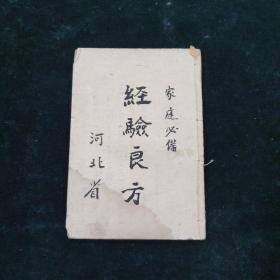 家庭必備
經驗良方
河北省